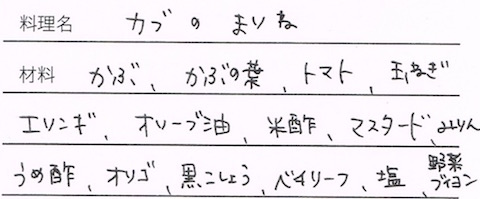 料理名 カブの まりね
材料 かぶ、かぶの葉、トマト、玉ねぎ
エリンギ、オリーブ油、米酢、マスタード、みりん
うめ酢、オリゴ、黒こしょう、ベイリーフ、塩、野菜ブイヨン